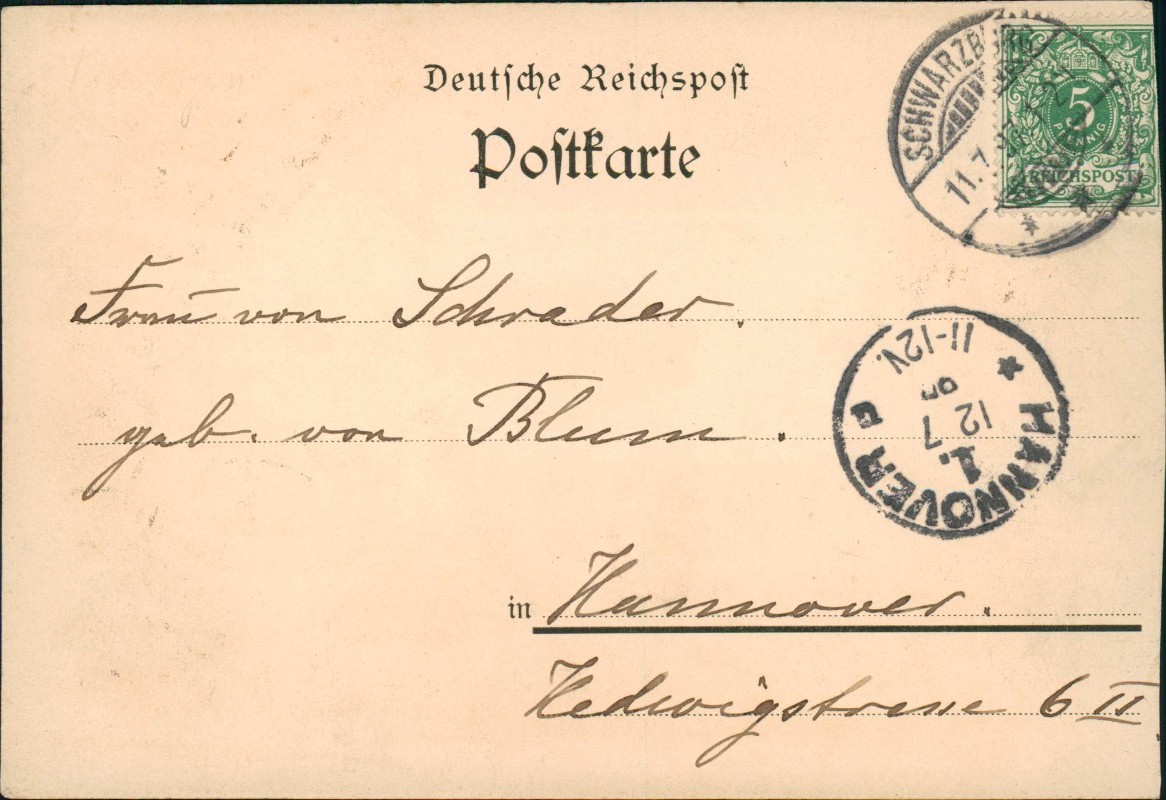 Deutsche Reichspost
Postkarte
SCHWARZBURG
11.7.
5
PFENNIG
REICHSPOST
Frau von Schrader.
geb. von Blum.
HANNOVER
1.
12 7
11-12V.
in Hannover.
Hedwigstrasse 6 II